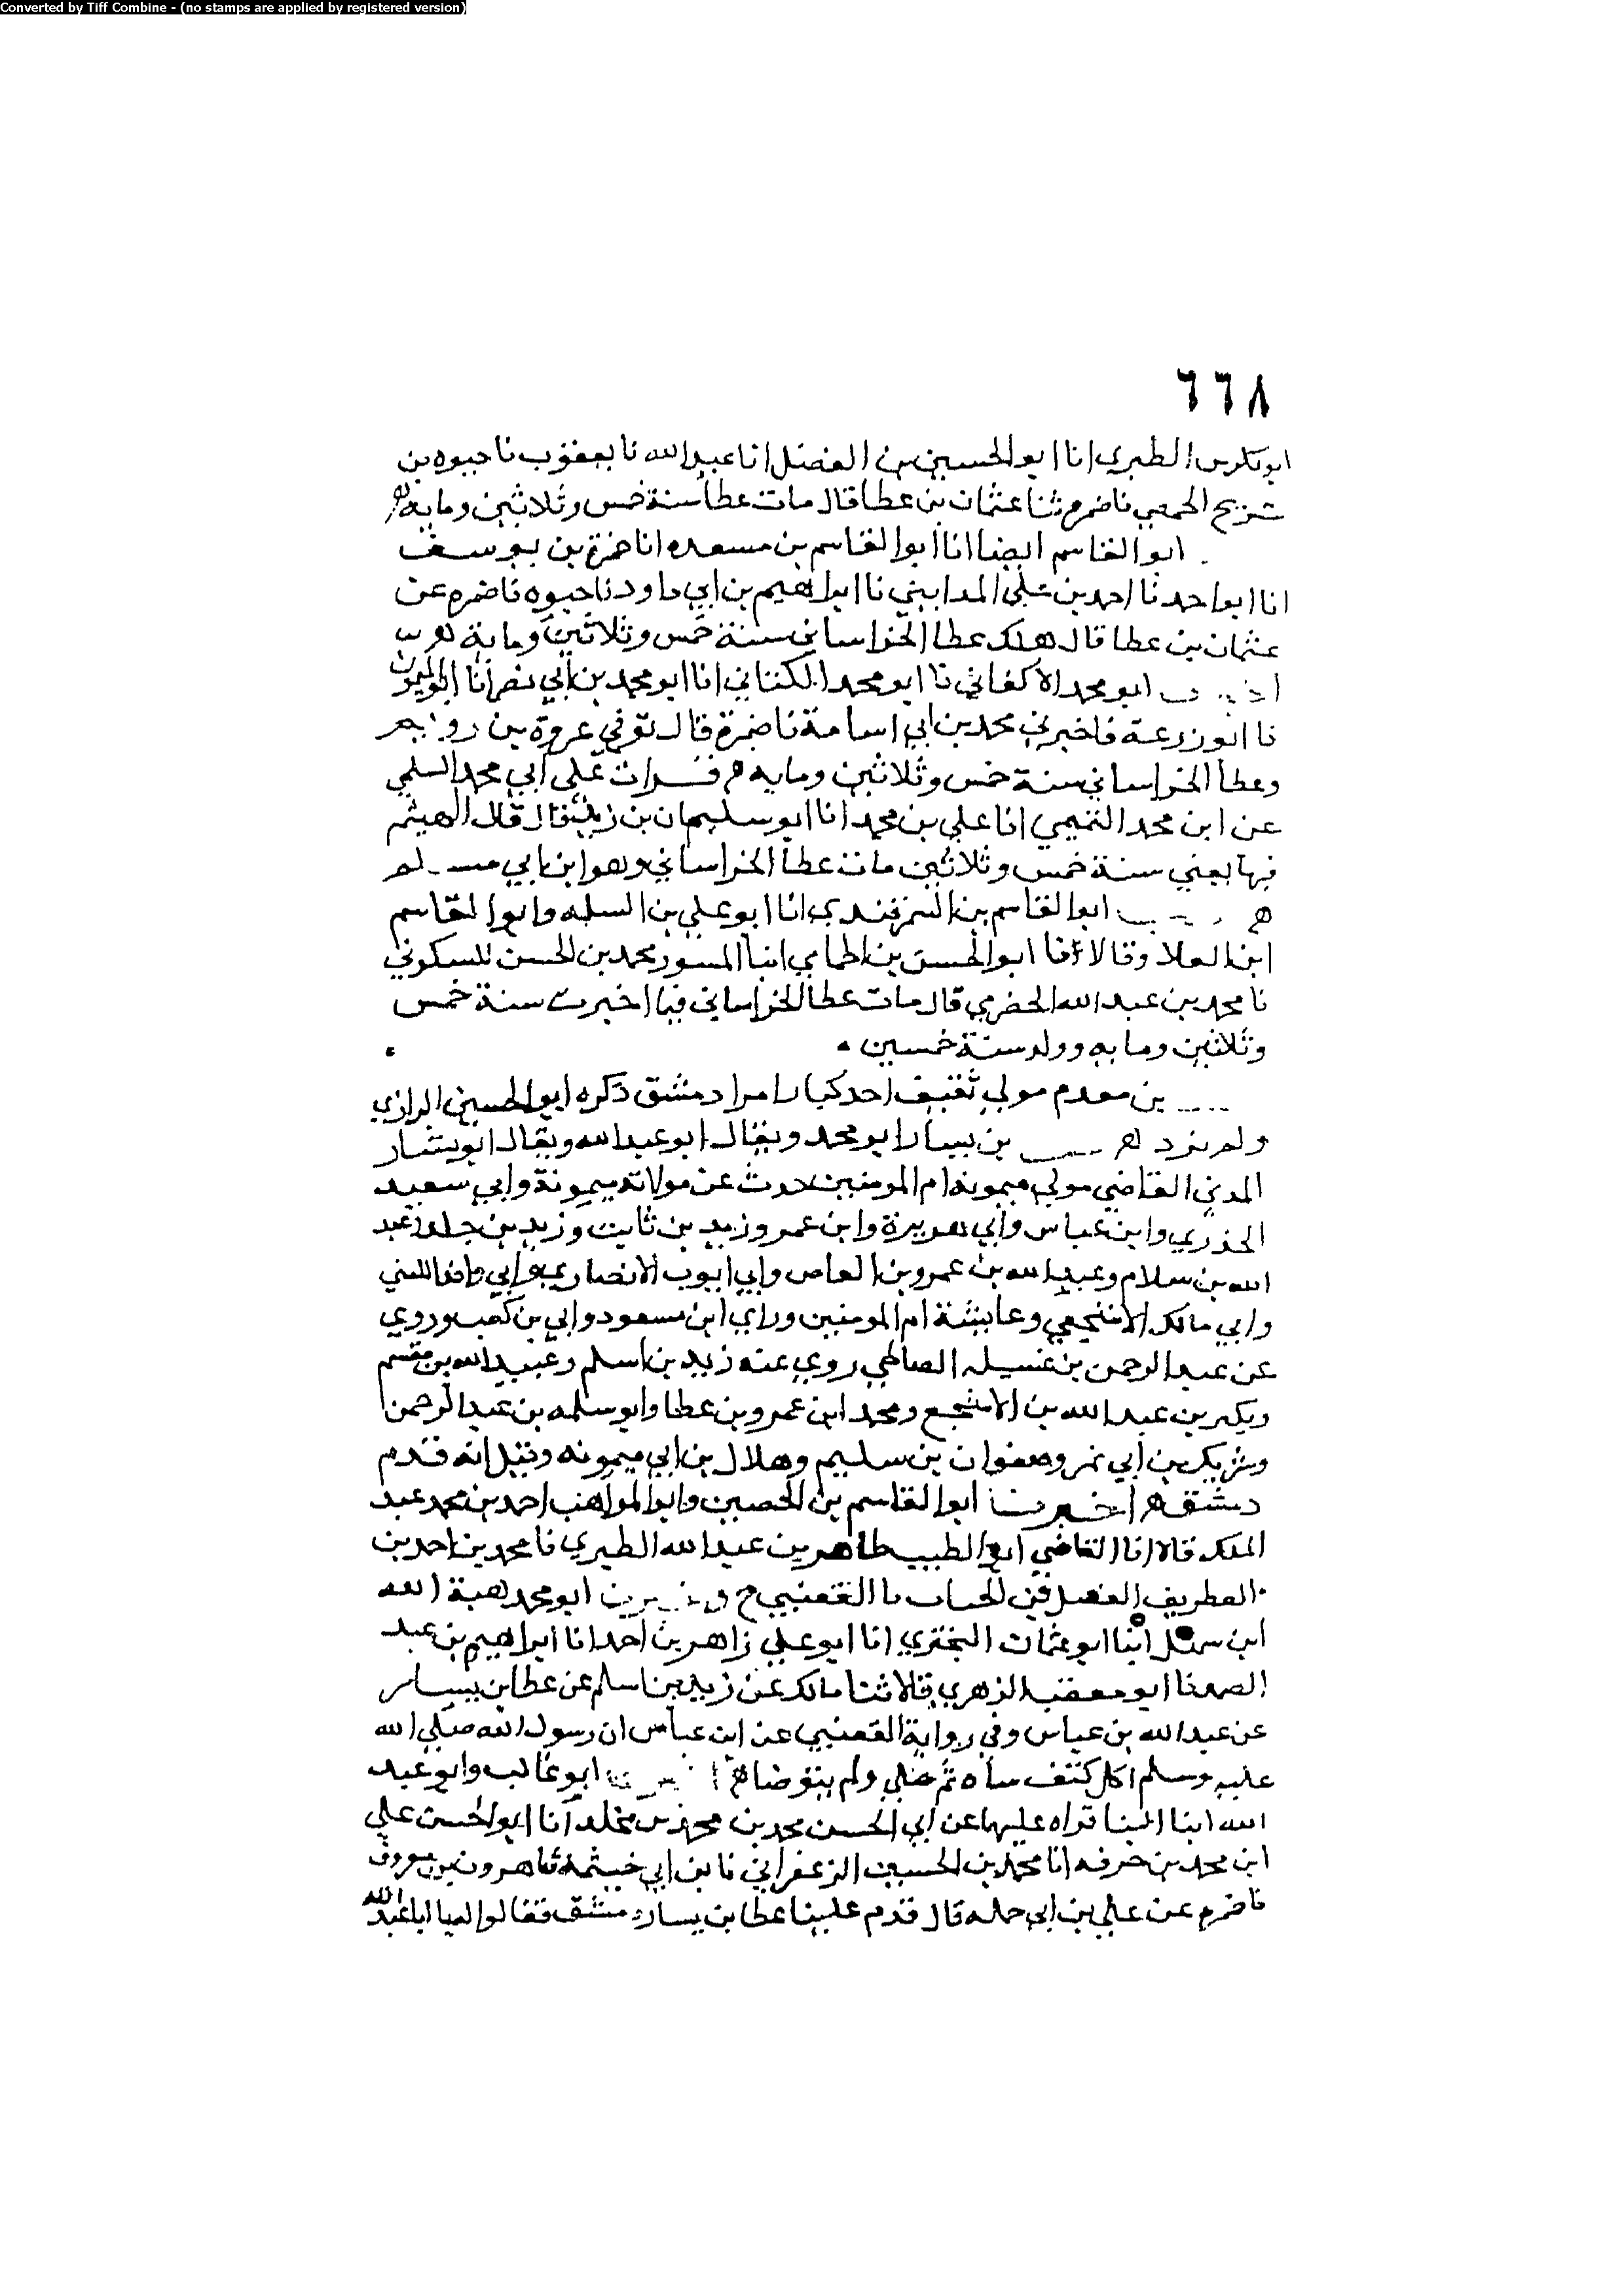 Converted by Tiff Combine - (no stamps are applied by registered version)
٦٦٨
ابو بكر بن الطبري انا ابو الحسين بن الفضل انا عبد الله نا يعقوب نا حيوه بن
شريح الحمصي نا ضمره ثنا عثمان بن عطا قال مات عطا سنة خمس وثلاثين ومايه
ابو القاسم ايضا انا ابو القاسم بن مسعده انا حمزة بن يوسف
انا ابو احد نا احمد بن علي المدايني نا ابراهيم بن ابي داود نا حيوه نا ضمره عن
عثمان بن عطا قال هلك عطا الخراساني سنة خمس وثلاثين وماية
ابو محمد الاكفاني نا ابو محمد الكتاني انا ابو محمد بن ابي نصر انا ابو الميمون
نا ابو زرعة فاخبرني محمد بن ابي اسامة نا ضمرة قال توفي عروة بن رويم
وعطا الخراساني سنة خمس وثلاثين ومايه قرات على ابي محمد السلمي
عن ابن محمد التميمي انا علي بن محمد انا ابو سليمان بن زبر قال قال الهيثم
فيها يعني سنة خمس وثلاثين مات عطا الخراساني وهو ابن ابي مسلم
ابو القاسم بن السمرقندي انا ابو علي بن المسلمه وابو القاسم
ابن العلا وقالا انا ابو الحسن بن الحمامي انبا المسور محمد بن الحسن للسكوني
نا محمد بن عبد الله الحضرمي قال مات عطا الخراساني فيما اخبرت سنة خمس
وثلاثين ومايه وولد سنة خمسين
بن معدم مولى ثقيف احد كبار امرا دمشق ذكره ابو الحسين الرازي
ولم يزد بن يسار ابو محمد ويقال ابو عبد الله ويقال ابو يسار
المدني القاضي مولى ميمونة ام المومنين حدث عن مولاته ميمونة وابي سعيد
الخدري وابن عباس وابي هريرة وابن عمر وزيد بن ثابت وزيد بن خلد وعبد
الله بن سلام وعبد الله بن عمرو بن العاص وابي ايوب الانصاري وابي واقد الليثي
وابي مالك الاشجعي وعايشة ام المومنين وراى ابن مسعود وابي بن كعب وروى
عن عبد الرحمن بن عسيله الصنابحي روى عنه زيد بن اسلم وعبيد الله بن مقسم
وبكير بن عبد الله بن الاشجع ومحمد ابن عمرو بن عطا وابو سلمه بن عبد الرحمن
وشريك بن ابي نمر وصفوان بن سليم وهلال بن ابي ميمونه وقيل انه قدم
دمشق اخبرنا ابو القاسم بن الحصين وابو المواهب احمد بن محمد عبد
الملك قالا انا القاضي ابو الطيب طاهر بن عبد الله الطبري نا محمد بن احمد بن
الغطريف الفضل بن الحباب نا القعنبي ح ابو محمد هبة الله
ابن سهل انبا ابو عثمان البختري انا ابو علي زاهر بن احمد انا ابراهيم بن عبد
الصمد نا ابو مصعب الزهري قالا ثنا مالك عن زيد بن اسلم عن عطا بن يسار
عن عبد الله بن عباس وفي رواية القعنبي عن ابن عباس ان رسول الله صلى الله
عليه وسلم اكل كتف شاه ثم صلى ولم يتوضا ابو غالب وابو عبد
الله ابنا البنا قراه عليهما عن ابي الحسن محمد بن محمد بن مخلد انا ابو الحسن علي
ابن محمد بن خزفه انا محمد بن الحسين الزعفراني نا بن ابي خيثمة نا هرون بن معروف
نا ضمره عن علي بن ابي حمله قال قدم علينا عطا بن يسار دمشق فقالوا له يا ابا عبد الله